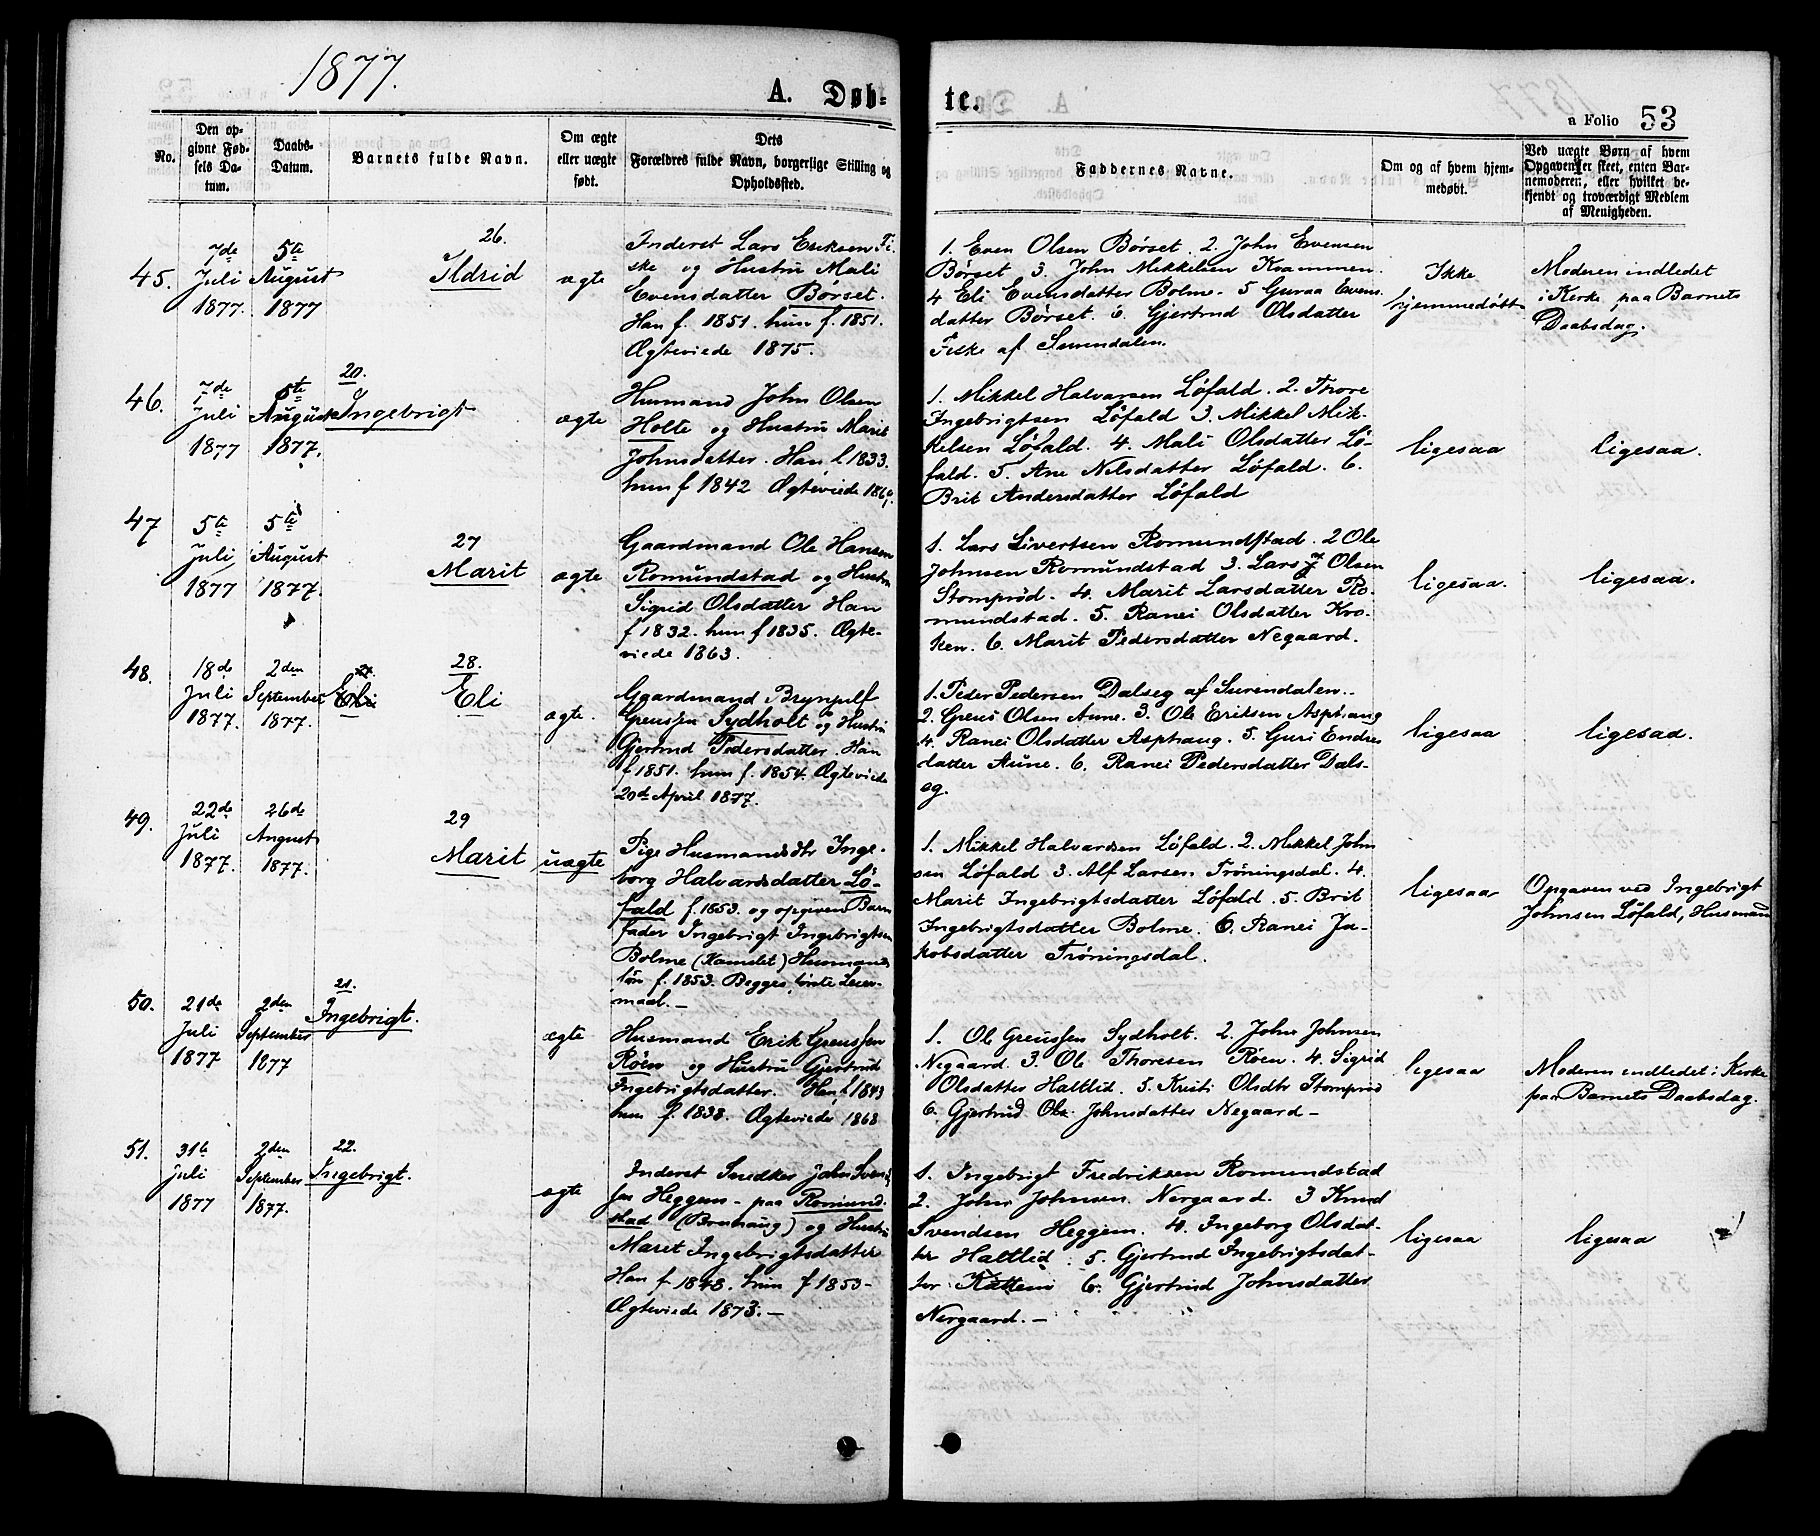 1877.
A. Døb-
te.
a Folio 53
No.
Den op-
givne Fød-
sels Da-
tum.
Daabs-
Datum.
Barnets fulde Navn.
Om ægte
eller uægte
født.
Dets
Forældres fulde Navn, borgerlige Stilling og
Opholdssted.
Faddernes Navne.
Om og af hvem hjem-
medøbt.
Ved uægte Børn af hvem
Opgaven er skeet, enten Bar-
nemoderen, eller hvilket be-
kjendt og troværdigt Medlem
af Menigheden.
45.
7de
Juli
1877.
5te
August
1877
26.
Ildrid
ægte
Inderst Lars Eriksen Fi-
ske og Hustru Mali
Evensdatter Børset.
Han f. 1851. hun f. 1851.
Ægteviede 1875.
1. Even Olsen Børset. 2. John Evensen
Børset 3. John Mikkelsen Kvammen.
4 Eli Evensdatter Bolme. 5 Guraa Evens-
datter Børset. 6. Gjertrud Olsdatter
Fiske af Surendalen.
Ikke
hjemmedøbt
Moderen indledet
i Kirke paa Barnets
Daabsdag.
46.
7de
Juli
1877
5te
August
1877.
20.
Ingebrigt
ægte
Husmand John Olsen
Holte og Hustru Marit
Johnsdatter. Han f. 1833.
hun f 1842 Ægteviede
1. Mikkel Halvorsen Løfald. 2. Thore
Ingebrigtsen Løfald 3. Mikkel Mik-
kelsen Løfald. 4. Mali Olsdatter Lø-
fald. 5. Ane Nilsdatter Løfald. 6.
Brit Andersdatter Løfald
ligesaa
ligesaa.
47
5te
Juli
1877
5te
August
1877.
27
Marit
ægte
Gaardmand Ole Hansen
Romundstad og Hustru
Sigrid Olsdatter Han
f 1832. hun f 1835. Ægte-
viede 1863.
1. Lars Sivertsen Romundstad. 2 Ole
Johnsen Romundstad 3. Lars J. Olsen
Stomprød. 4. Marit Larsdatter Ro-
mundstad. 5. Ranei Olsdatter Kro-
ken. 6. Marit Pedersdatter Negaard.
ligesaa.
ligesaa.
48.
18de
Juli
1877.
2den
September
1877.
Eli
28.
Eli
ægte.
Gaardmand Brynjulf
Greussen Sydholt og Hustru
Gjertrud Pedersdatter. Han
f 1851. hun f. 1854. Ægteviede
20de April 1877.
1. Peder Pedersen Dalseg af Surendalen.
2. Greus Olsen Aune. 3. Ole Eriksen Asphaug
4. Ranei Olsdatter Asphaug. 5. Guri Endres
datter Aune. 6. Ranei Pedersdatter Dals-
eg.
ligesaa
ligesaa.
49.
22de
Juli
1877.
26de
August
1877.
29
Marit
uægte
Pige Husmandsdtr Inge-
borg Halvardsdatter Lø-
fald f. 1853. og opgiven Barn
fader Ingebrigt Ingebrigtsen
Bolme (Kamslet) Husmands
søn f. 1853. Begges første Leier-
maal.-
1. Mikkel Halvardsen Løfald. 2. Mikkel John
sen Løfald 3. Alf Larsen Trøningsdal. 4.
Marit Ingebrigtsdatter Løfald. 5. Brit
Ingebrigtsdatter Bolme. 6. Ranei Ja-
kobsdatter Trøningsdal.
ligesaa
Opgaven ved Ingebrigt
Johnsen Løfald, Husmand
50.
21de
Juli
1877
2den
September
1877
21.
Ingebrigt.
ægte
Husmand Erik Greussen
Røen og Hustru Gjertrud
Ingebrigtsdatter. Han f. 1843
hun f. 1838. Ægteviede 1868
1. Ole Greussen Sydholt. 2. John Johnsen
Negaard. 3. Ole Thoresen Røen. 4. Sigrid
Olsdatter Haltlid. 5. Kristi Olsdtr Stomprød
6. Gjertrud Johnsdatter Negaard-
ligesaa
Moderen indledet i Kirke
paa Barnets Daabsdag.
51.
31te
Juli
1877
2den
September
1877.
22.
Ingebrigt.
ægte
Inderst Snedker John Svend
sen Heggem- paa Romund-
stad (Brunaug) og Hustru
Maret Ingebrigtsdatter
Han f 1848. hun f 1853-
Ægteviede 1873.-
1. Ingebrigt Fredriksen Romundstad
2. John Johnsen Nergaard. 3 Knud
Svendsen Heggem. 4. Ingeborg Olsdat-
ter Haltlid. 5. Gjertrud Ingebrigtsdat-
ter Kattem 6. Gjertrud Johnsdatter
Nergaard.-
ligesaa
ligesaa